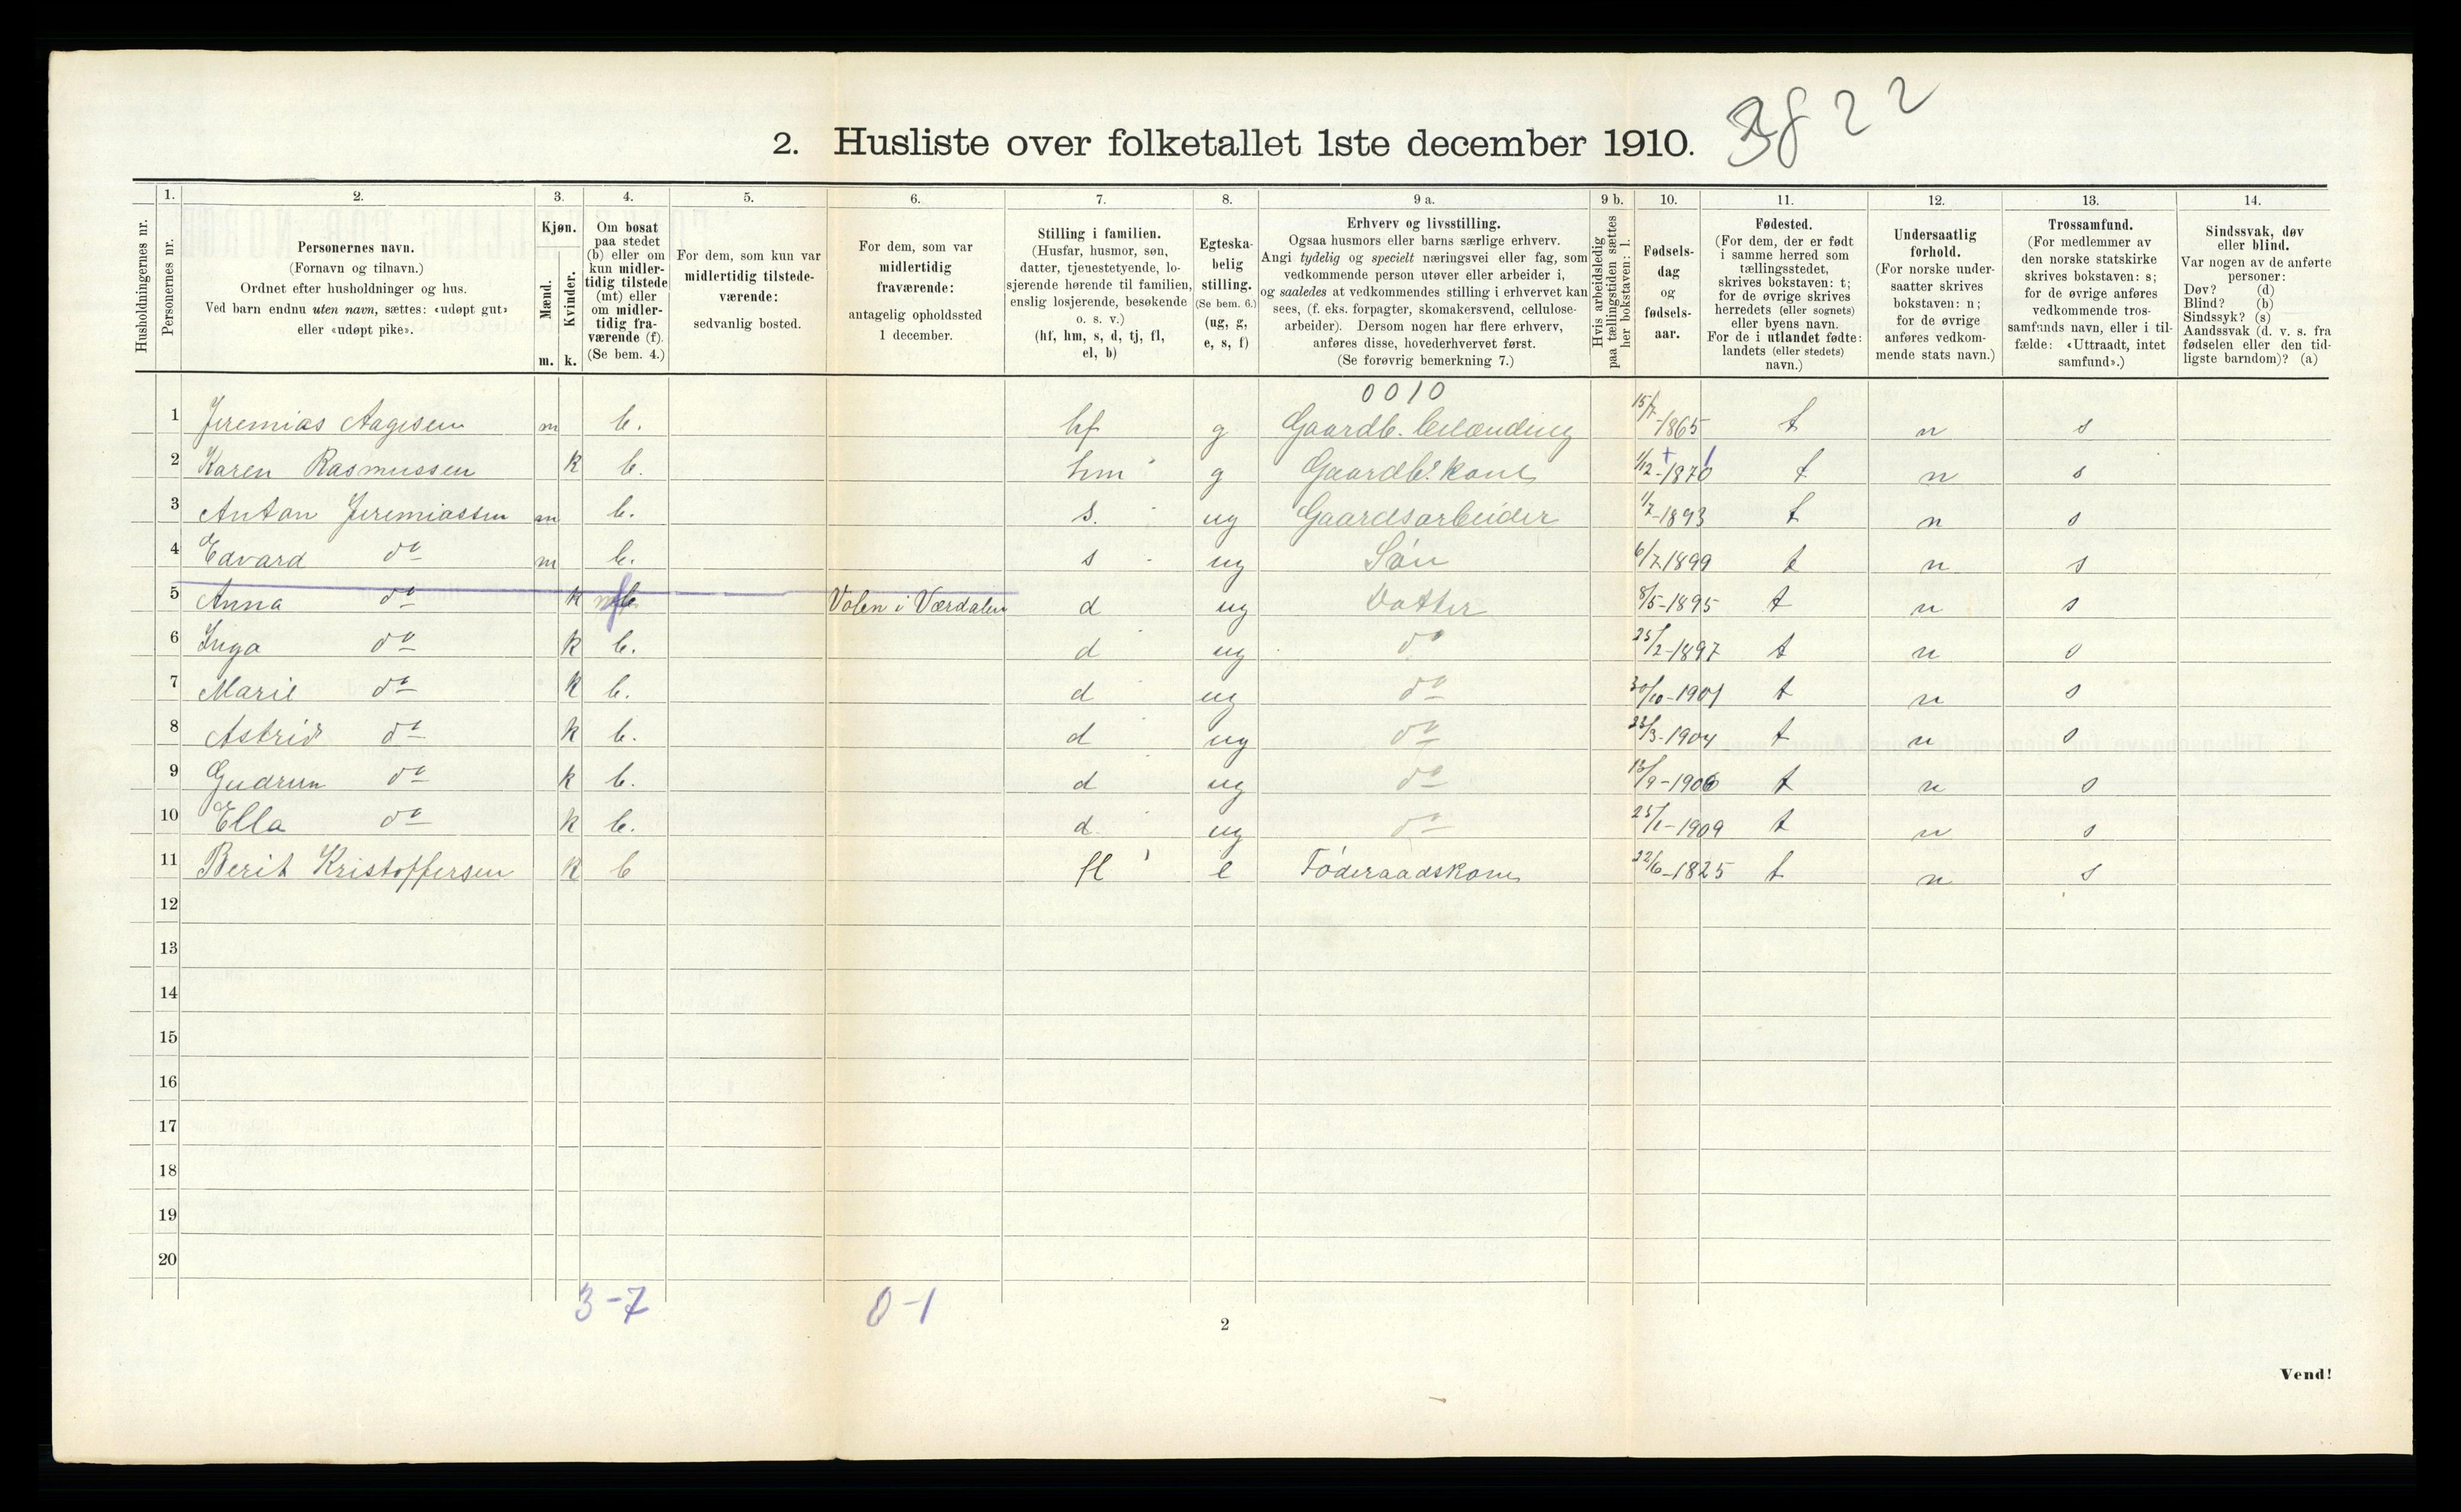 2. Husliste over folketallet 1ste december 1910.
22
Husholdningernes nr.
1. Personernes nr.
2. Personernes navn.
(Fornavn og tilnavn.)
Ordnet efter husholdninger og hus.
Ved barn endnu uten navn, sættes: «udøpt gut»
eller «udøpt pike».
3. Kjøn.
Mænd. Kvinder.
m. k.
4. Om bosat
paa stedet
(b) eller om
kun midler-
tidig tilstede
(mt) eller
om midler-
tidig fra-
værende (f).
(Se bem. 4.)
5. For dem, som kun var
midlertidig tilstede-
værende:
sedvanlig bosted.
6. For dem, som var
midlertidig
fraværende:
antagelig opholdssted
1 december.
7. Stilling i familien.
(Husfar, husmor, søn,
datter, tjenestetyende, lo-
sjerende hørende til familien,
enslig losjerende, besøkende
o. s. v.)
(hf, hm, s, d, tj, fl,
el, b)
8. Egteska-
belig
stilling.
(Se bem. 6.)
(ug, g,
e, s, f)
9 a. Erhverv og livsstilling.
Ogsaa husmors eller barns særlige erhverv.
Angi tydelig og specielt næringsvei eller fag, som
vedkommende person utøver eller arbeider i,
og saaledes at vedkommendes stilling i erhvervet kan
sees, (f. eks. forpagter, skomakersvend, cellulose-
arbeider). Dersom nogen har flere erhverv,
anføres disse, hovederhvervet først.
(Se forøvrig bemerkning 7.)
9 b. Hvis arbeidsledig
paa tællingstiden sættes
her bokstaven: l.
10. Fødsels-
dag
og
fødsels-
aar.
11. Fødested.
(For dem, der er født
i samme herred som
tællingsstedet,
skrives bokstaven: t;
for de øvrige skrives
herredets (eller sognets)
eller byens navn.
For de i utlandet fødte:
landets (eller stedets)
navn.)
12. Undersaatlig
forhold.
(For norske under-
saatter skrives
bokstaven: n;
for de øvrige
anføres vedkom-
mende stats navn.)
13. Trossamfund.
(For medlemmer av
den norske statskirke
skrives bokstaven: s;
for de øvrige anføres
vedkommende tros-
samfunds navn, eller i til-
fælde: «Uttraadt, intet
samfund».)
14. Sindssvak, døv
eller blind.
Var nogen av de anførte
personer:
Døv? (d)
Blind? (b)
Sindssyk? (s)
Aandssvak (d. v. s. fra
fødselen eller den tid-
ligste barndom)? (a)
0010
1 Jeremias Aagesen m b. hf g Gaardb. 15/7-1865 t n s
2 Karen Rasmussen k b. hm g Gaardb. kone 1/12-1870 t n s
3 Anton Jeremiassen m b. s. ug Gaardsarbeider 1/7-1893 t n s
4 Edvard do m b. s ug Søn 6/7 1899 t n s
5 Anna do k f Volen i Værdalen d ug Datter 8/5-1895 t n s
6 Inga do k b. d ug do 25/2-1897 t n s
7 Marie do k b. d ug do 30/10-1901 t n s
8 Astrid do k b. d ug do 23/3-1904 t n s
9 Gudrun do k b. d ug do 13/9-1906 t n s
10 Ella do k b. d ug do 25/1-1909 t n s
11 Berit Kristoffersen k b fl e Føderaadskone 22/6-1825 t n s
12
13
14
15
16
17
18
19
20
3-7 0-1
2
Vend!